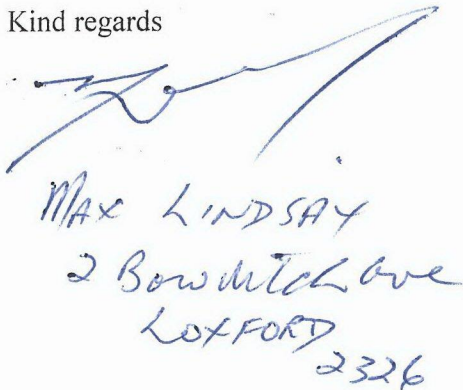 Kind regards
MAX LINDSAY
2 Bowditch Ave
LOXFORD
2326